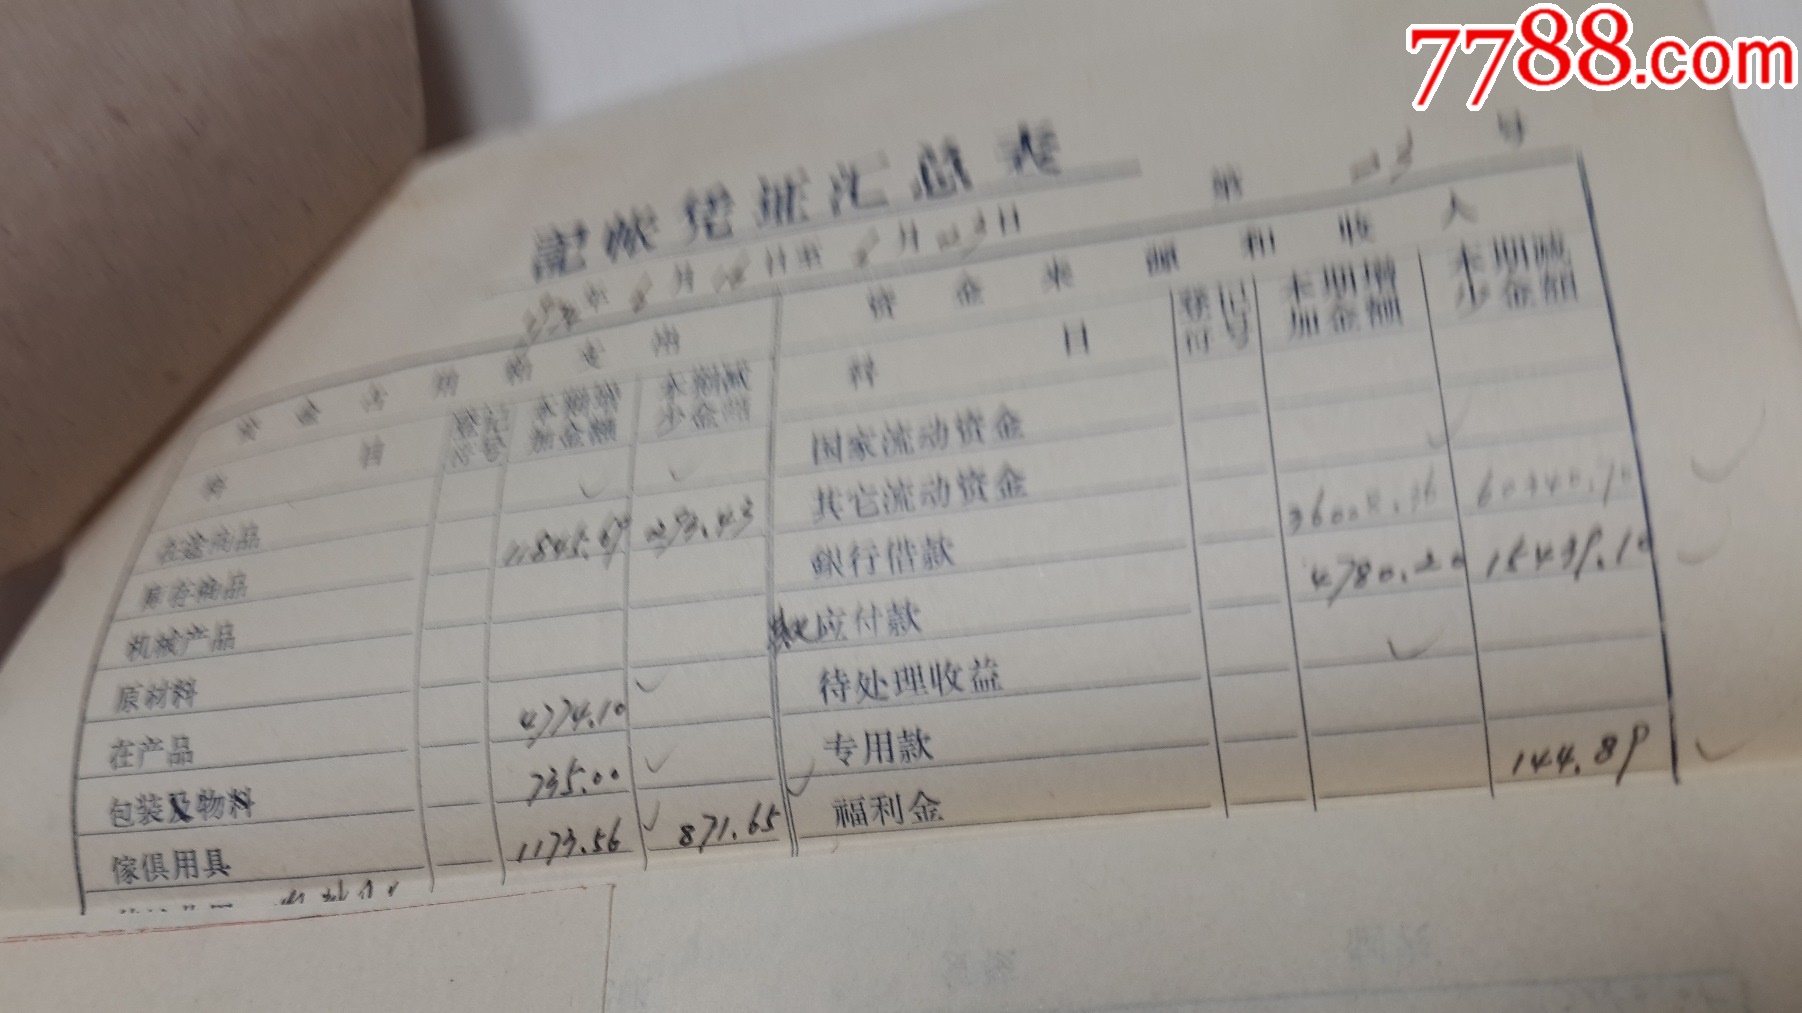 7788.com
記帐凭证汇总表
第 23 号
年 8 月 日至 8 月 23 日
资金占用和支出
资金来源和收入
科 目 登记符号 本期增加金额 本期减少金额
科 目 登记符号 本期增加金额 本期减少金额
在途商品 11845.69 293.43
库存商品
机械产品
原材料
在产品 4774.10
包装及物料 735.00
傢俱用具 1173.56 871.65
国家流动资金
其它流动资金
銀行借款
其他应付款 4780.20 15439.10
待处理收益
专用款
福利金 144.89